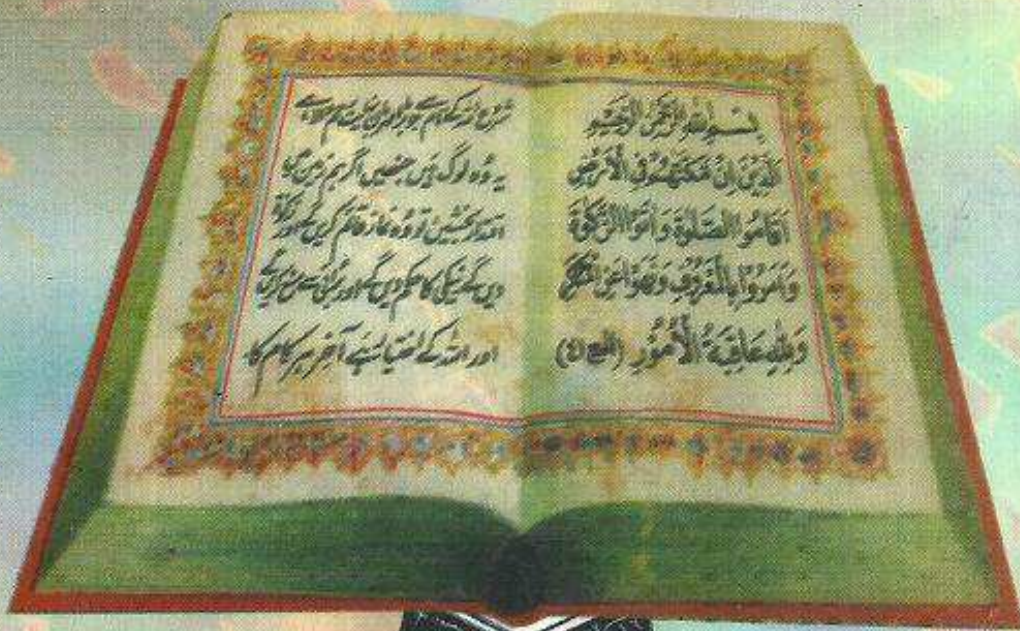 بِسْمِ اللهِ الرَّحْمٰنِ الرَّحِيْمِ
اَلَّذِيْنَ اِنْ مَّكَّنّٰهُمْ فِى الْاَرْضِ
اَقَامُوا الصَّلٰوةَ وَاٰتَوُا الزَّكٰوةَ
وَاَمَرُوْا بِالْمَعْرُوْفِ وَنَهَوْا عَنِ الْمُنْكَرِ
وَلِلّٰهِ عَاقِبَةُ الْاُمُوْرِ (الحج ۴۱)
شروع اللہ کے نام سے جو
یہ وہ لوگ ہیں جنھیں اگر ہم زمین میں
اقتدار بخشیں تو وہ نماز قائم کریں گے اور زکوٰۃ
دیں گے نیکی کا حکم دیں گے اور برائی سے منع کریں گے
اور اللہ کے اختیار میں ہے آخر ہر کام کا